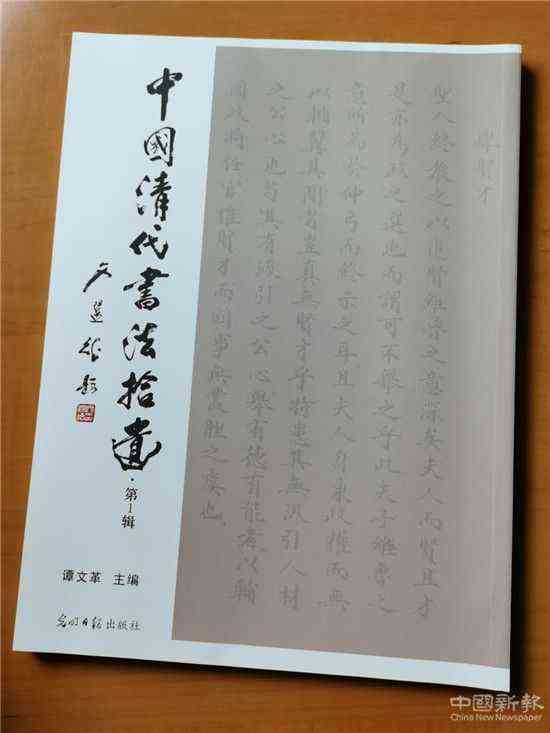 中國清代書法拾遺
·第1辑
文選德題
谭文革 主编
光明日报出版社
舉賢才
聖人終教之以進賢之意深矣夫人而賢且才
是亦為政之選也而謂可不之乎此夫子之
意所為於仲弓而終示之耳且夫人身秉政權而無
以輔翼其間者豈真無賢才乎特患其無汲引人材
之公心也苟其有汲引之公心舉有德有能者以輔
國政將任官惟賢才而事無叢脞之虞也
中國新報
China New Newspaper